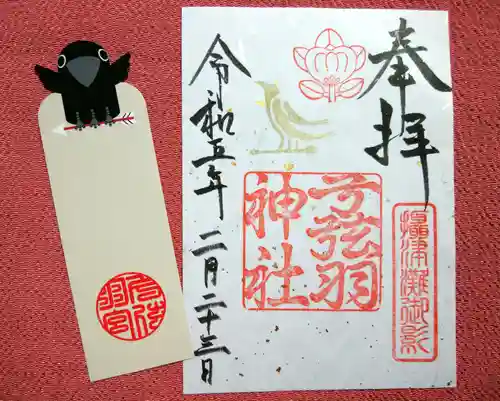 奉拝
攝津灘御影
弓弦羽神社
令和五年二月二十三日